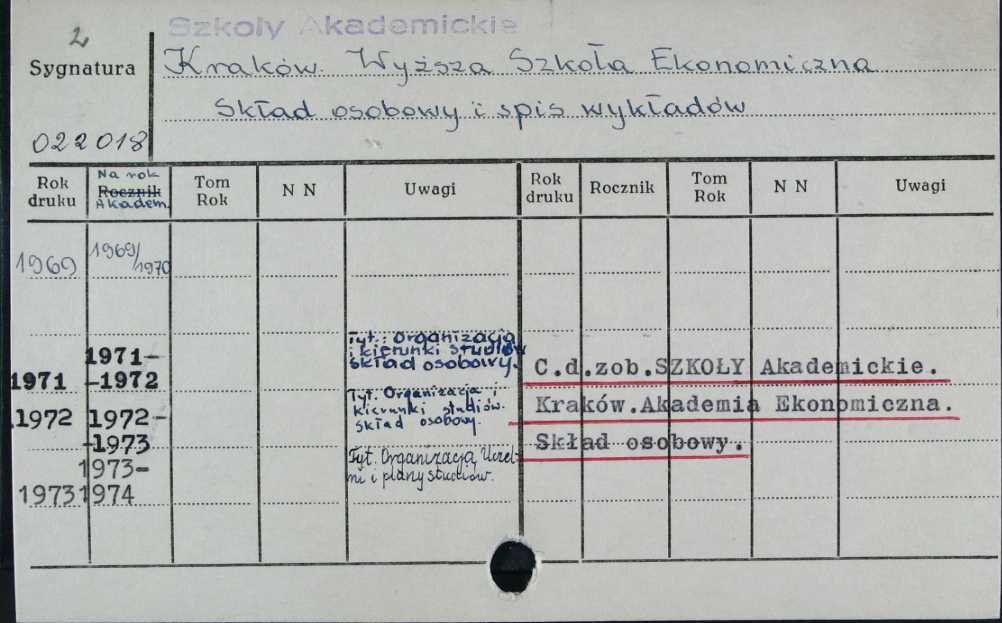 2
Szkoły Akademickie
Sygnatura
Kraków. Wyższa Szkoła Ekonomiczna
Skład osobowy i spis wykładów
022018
Rok druku
Na rok
Rocznik
Akadem.
Tom Rok
N N
Uwagi
Rok druku
Rocznik
Tom Rok
N N
Uwagi
1969 1969/1970
Tyt.: Organizacja
i kierunki studiów
skład osobowy.
1971-
1971 -1972
C.d.zob.SZKOŁY Akademickie.
Tyt. Organizacja i
kierunki studiów.
skład osobowy.
1972 1972-
-1973
Kraków.Akademia Ekonomiczna.
Skład osobowy.
Tyt. Organizacja Uczel-
ni i plany studiów.
1973-
1973 1974